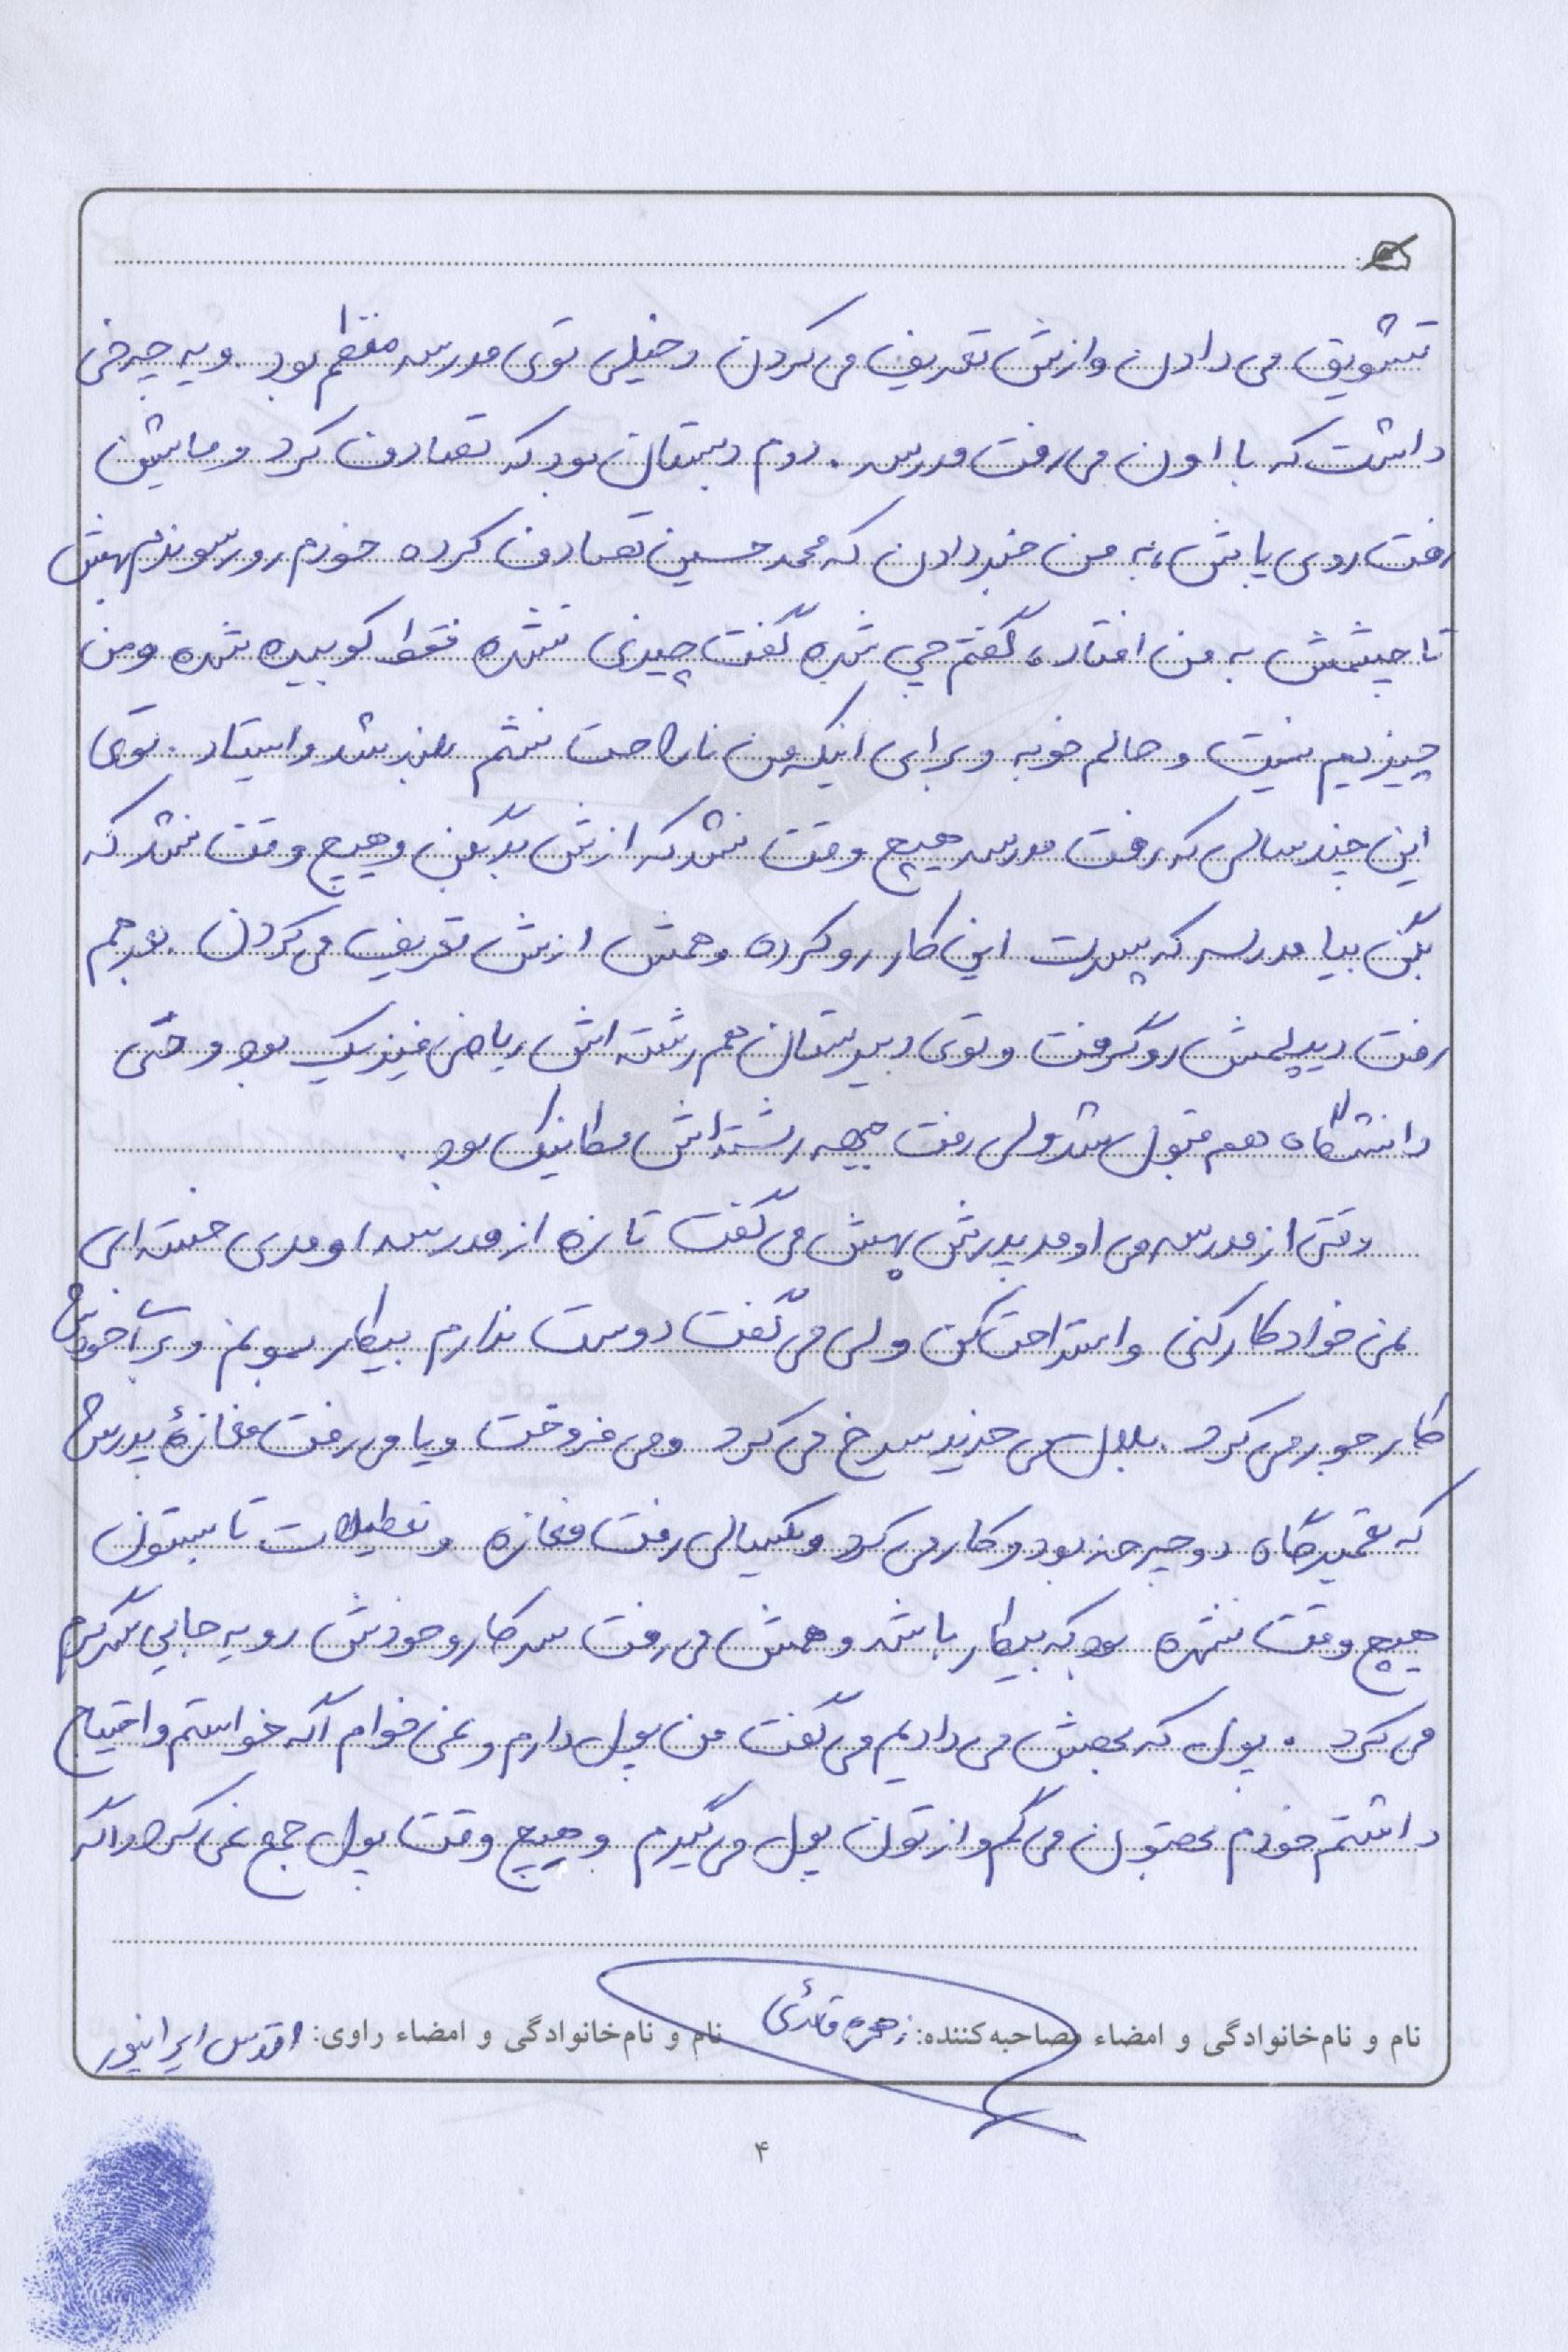 تشویق می دادن و ازش تعریف می کردن و خیلی توی مدرسه منظم بود. و یه چرخی
داشت که با اون می رفت مدرسه. دوم دبستان بود که تصادف کرد و ماشین
رفت روی پاش، به من خبر دادن که محمد حسین تصادف کرده خودم رو رسوندم بهش
تا چشمش به من افتاد، گفتم چی شده گفت چیزی نشده فقط کوبیده شده و من
چیزیم نیست و حالم خوبه و برای اینکه من ناراحت نشم بلند شد و ایستاد. توی
این چند سالی که رفت مدرسه هیچ وقت نشد که ازش بد بگن و هیچ وقت نشد که
بگن بیا مدرسه که پسرت این کار رو کرده و همش ازش تعریف می کردن. بعد هم
رفت دیپلمش رو گرفت و توی دبیرستان هم رشته اش ریاضی فیزیک بود و حتی
دانشگاه هم قبول شد ولی رفت جبهه رشته اش مکانیک بود.
وقتی از مدرسه می اومد پدرش بهش می گفت تازه از مدرسه اومدی خسته ای
نمی خواد کار کنی و استراحت کن ولی می گفت دوست ندارم بیکار بمونم و برا خودش
کار جور می کرد. بلال می خرید سرخ می کرد و می فروخت و یا می رفت مغازهٔ پدرش
که تعمیرگاه دوچرخه بود و کار می کرد و یکسالی رفت مغازه و تعطیلات تابستون
هیچ وقت نشده بود که بیکار باشد و همش می رفت سر کار و خودش رو یه جایی سرگرم
می کرد. پول که بهش می دادیم می گفت من پول دارم و نمی خوام اگه خواستم و احتیاج
داشتم خودم بهتون می گم و ازتون پول می گیرم و هیچ وقت پول جمع نمی کرد و اگه
نام و نام‌خانوادگی و امضاء مصاحبه‌کننده: زهره قائدی نام و نام‌خانوادگی و امضاء راوی: اقدس ایرانپور
۴